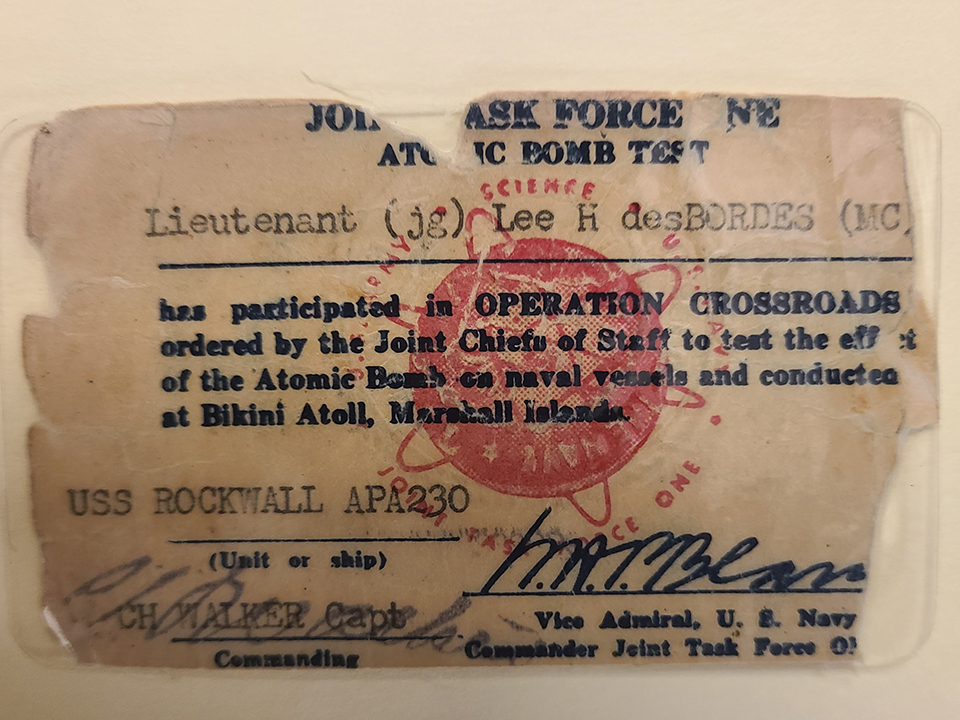 JOI ASK FORCE NE
ATO IC BOMB TEST
SCIENCE
Lieutenant (jg) Lee H desBORDES (MC)
has participated in OPERATION CROSSROADS
ordered by the Joint Chiefs of Staff to test the eff ct
of the Atomic Bomb on naval vessels and conducted
at Bikini Atoll, Marshall Islands.
USS ROCKWALL APA230
(Unit or ship)
CH WALKER Capt
Commanding
Vice Admiral, U. S. Navy
Commander Joint Task Force O